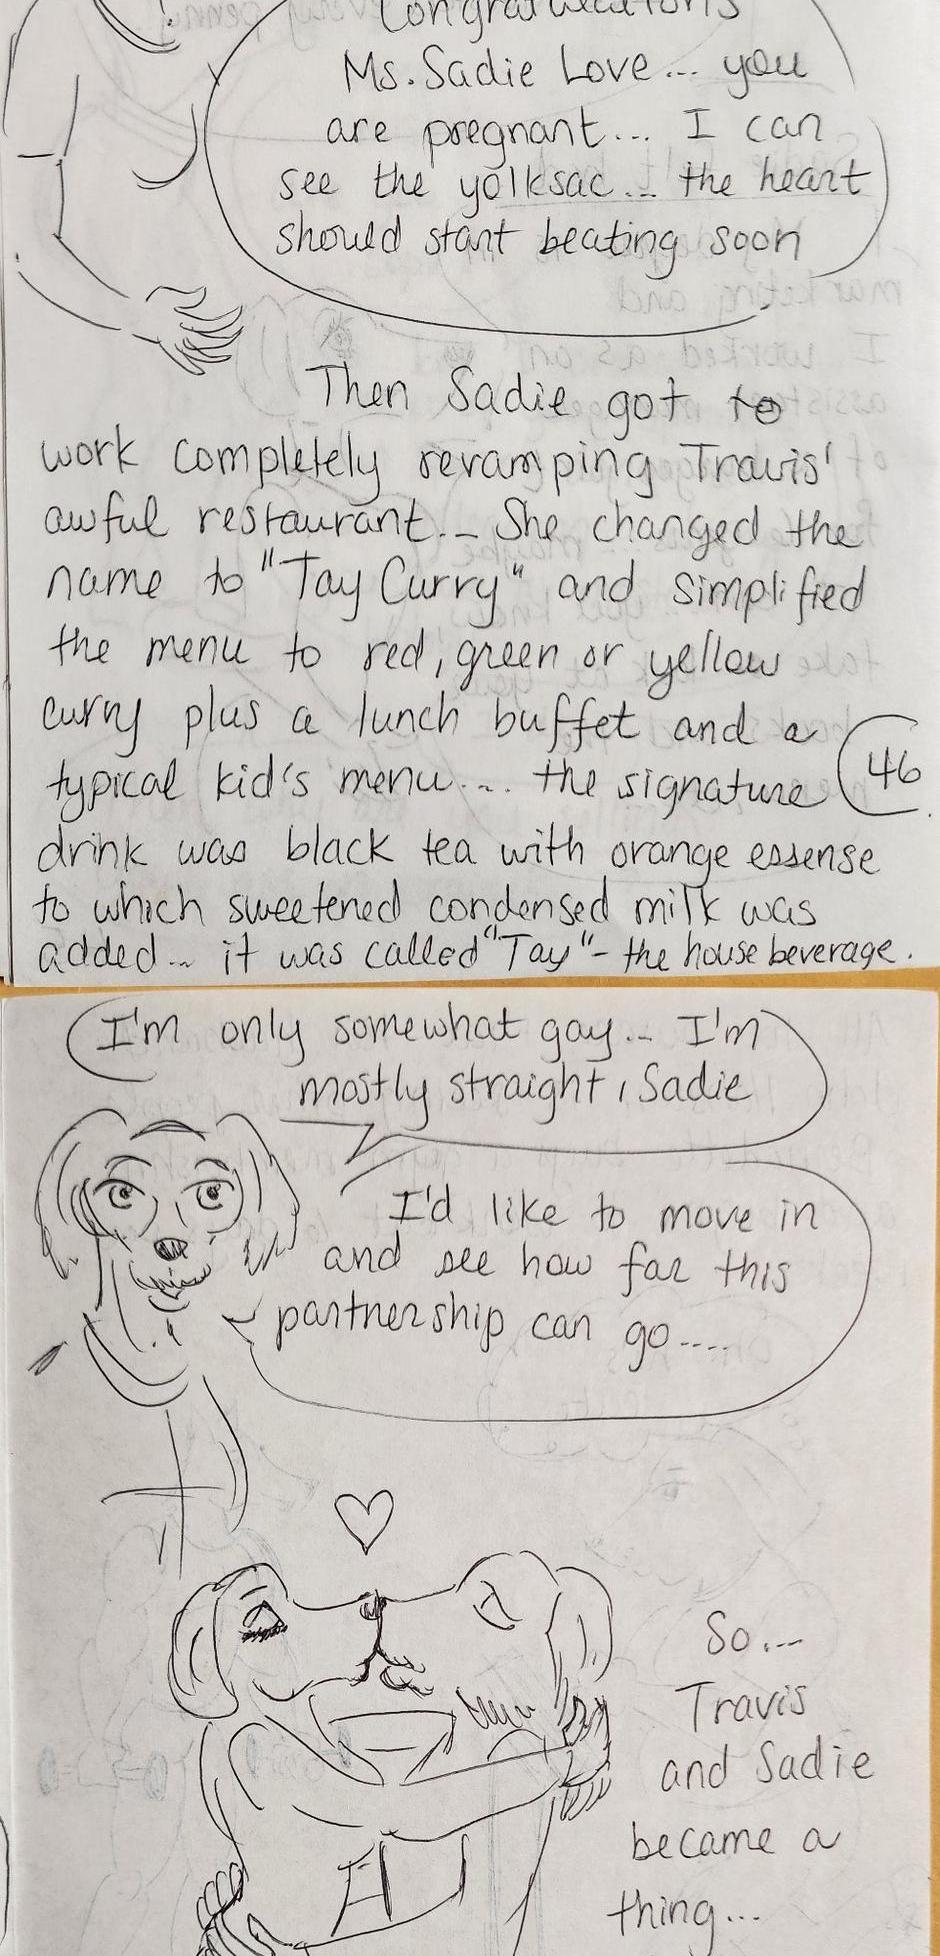 Congratulations
Ms. Sadie Love... you
are pregnant... I can
see the yolksac... the heart
should start beating soon
Then Sadie got to
work completely revamping Travis'
awful restaurant... She changed the
name to "Tay Curry" and simplified
the menu to red, green or yellow
curry plus a lunch buffet and a
typical kid's menu... the signature
46
drink was black tea with orange essense
to which sweetened condensed milk was
added... it was called "Tay" - the house beverage.
I'm only somewhat gay... I'm
mostly straight, Sadie
I'd like to move in
and see how far this
partnership can go....
So...
Travis
and Sadie
became a
thing...